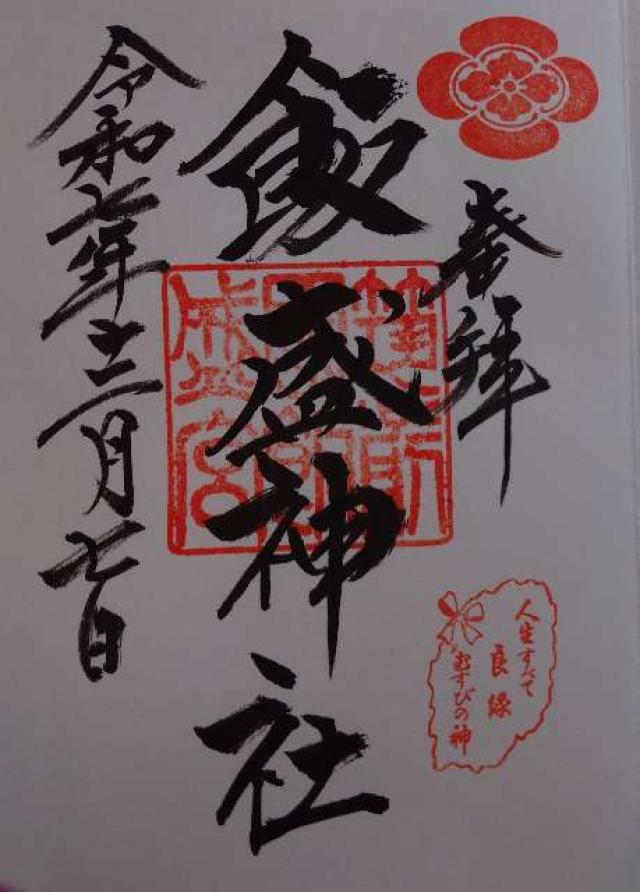 奉拝
人生すべて
良縁
むすびの神
飯盛神社
筑前
盛宮
令和七年十二月七日